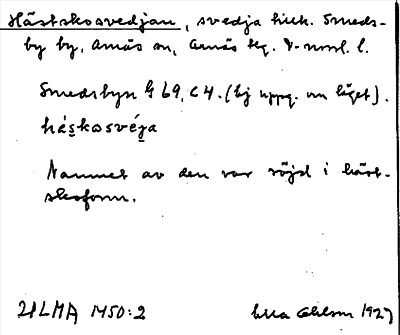 Hästskosvedjan, svedja hick. Smeds-
by by, Amås sn, Amås hg. V-norrl. l.
Smedsbyn G 69, C 4. (Ej uppg. om läget).
háskosvéja
Namnet av den var röjd i häst-
skoform.
ULMA 1450:2 1927